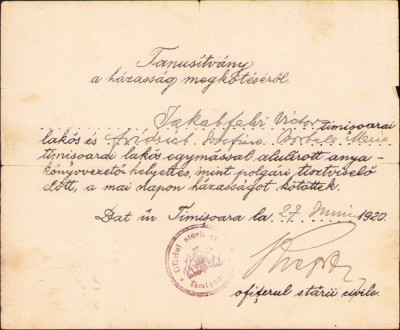 Tanusítvány
a házasság megkötéséről.
Jakabfalvi Victor timisoarai
lakós és Fridrich Josefine Borbala Maria
timisoarai lakós egymással alulirott anya-
könyvvezető helyettes, mint polgári tisztviselő
előtt, a mai napon házasságot kötöttek.
Dat în Timișoara la 27 Iunie 1920.
Oficiul stării civile
Timișoara
ofițerul stării civile.